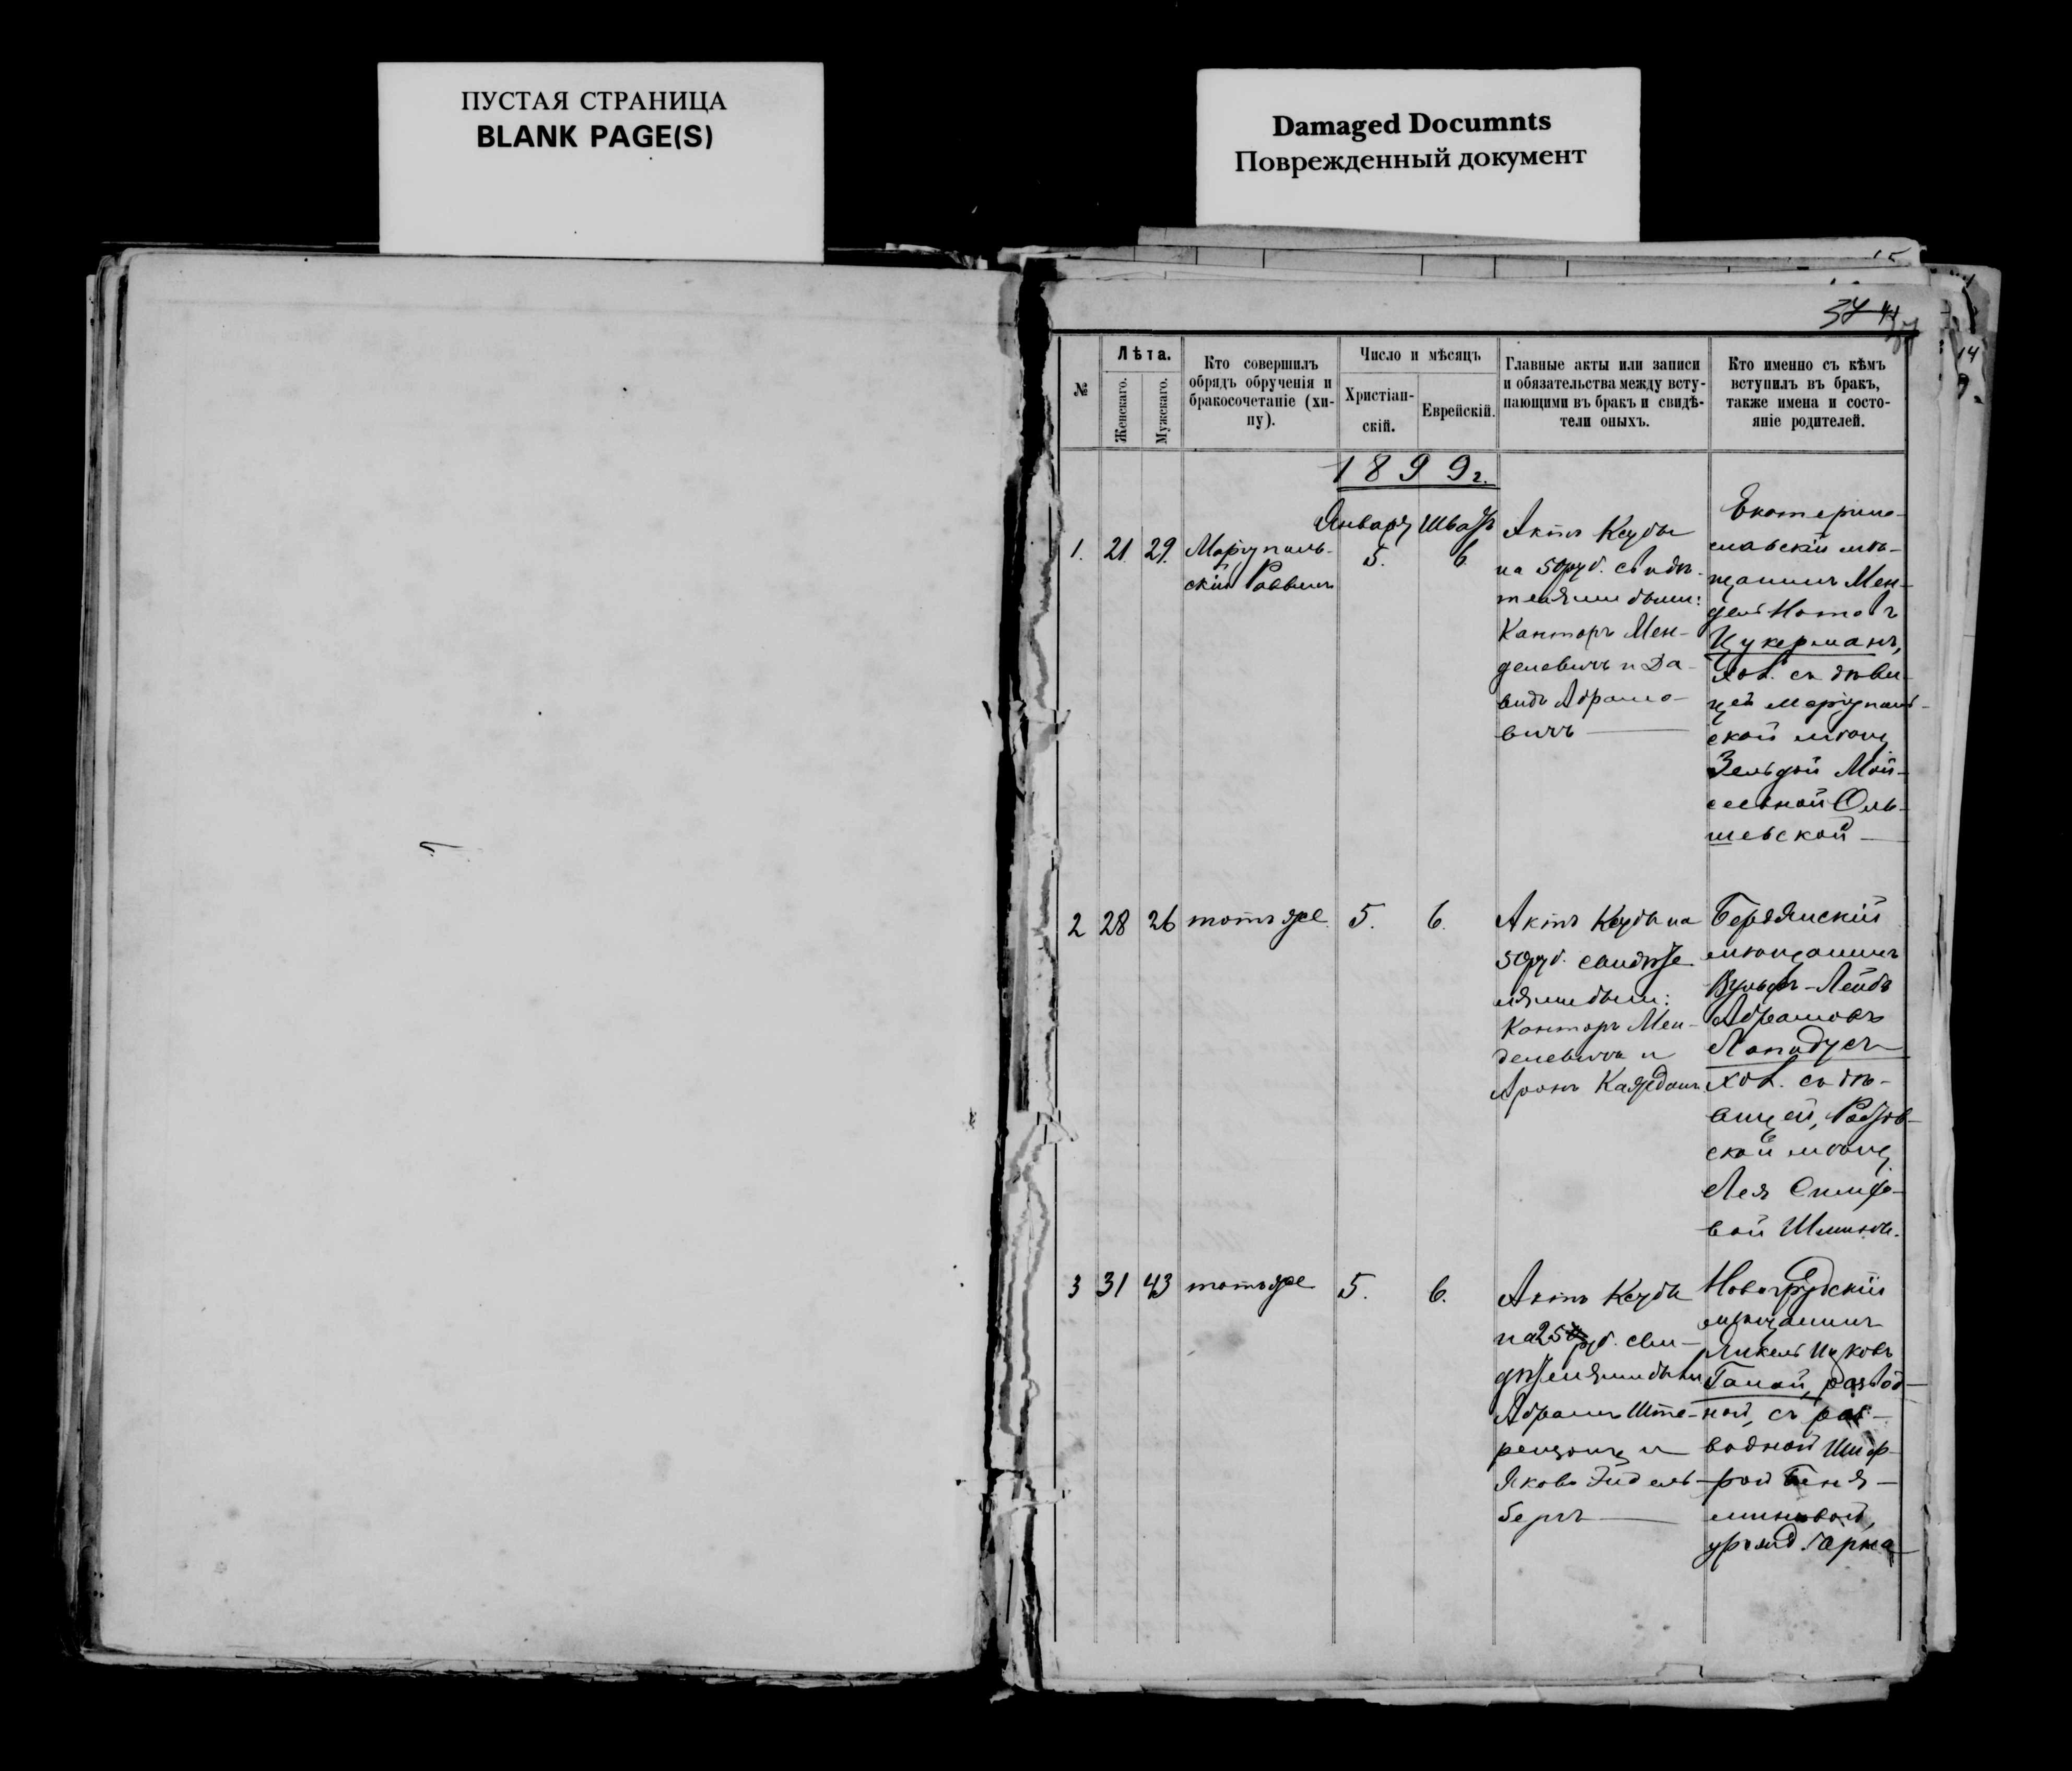 ПУСТАЯ СТРАНИЦА
BLANK PAGE(S)
Damaged Documnts
Поврежденный документ
37
14
№
Лѣта.
Женскаго.
Мужскаго.
Кто совершилъ
обрядъ обрученія и
бракосочетаніе (хи-
пу).
Число и мѣсяцъ
Христіан-
скій.
Еврейскій.
Главные акты или записи
и обязательства между всту-
пающими въ бракъ и свидѣ-
тели оныхъ.
Кто именно съ кѣмъ
вступилъ въ бракъ,
также имена и состо-
яніе родителей.
1899г.
1.
21
29.
Маріуполь-
скій Раввинъ
Январь
5.
Шватъ
6
Актъ Ксубы
на 50 руб. Свидѣ-
телями были:
Канторъ Мен-
делевичъ и Да-
видъ Абрамо-
вичъ
Екатерино-
славскій мѣ-
щанинъ Мен-
дель Нотовъ
Цукерманъ,
хол. съ дѣви-
цей Маріуполь-
ской мѣщ.
Зельдой Мой-
сеевной Оль-
шевской
2
28
26
тотъ же
5.
6.
Актъ Ксубы на
50 руб. свидѣте
лями были:
Канторъ Мен-
делевичъ и
Аронъ Кажданъ
Бердянскій
мѣщанинъ
Вульфъ-Лейбъ
Абрамовъ
Лапидусъ
хол. съ дѣ-
вицей, Ростов-
ской мѣщ.
Лея
вой
3
31
43
тотъ же
5.
6.
Актъ Ксубы
на 25 руб. сви-
дѣтелями были
Абрамъ Ште-
ренцонъ и
Яковъ Эйдель-
бергъ
Новогрудскій
мѣщанинъ
Янкель Ицковъ
развод-
ной, съ раз-
водной Шиф-
рой Беня-
миновой,